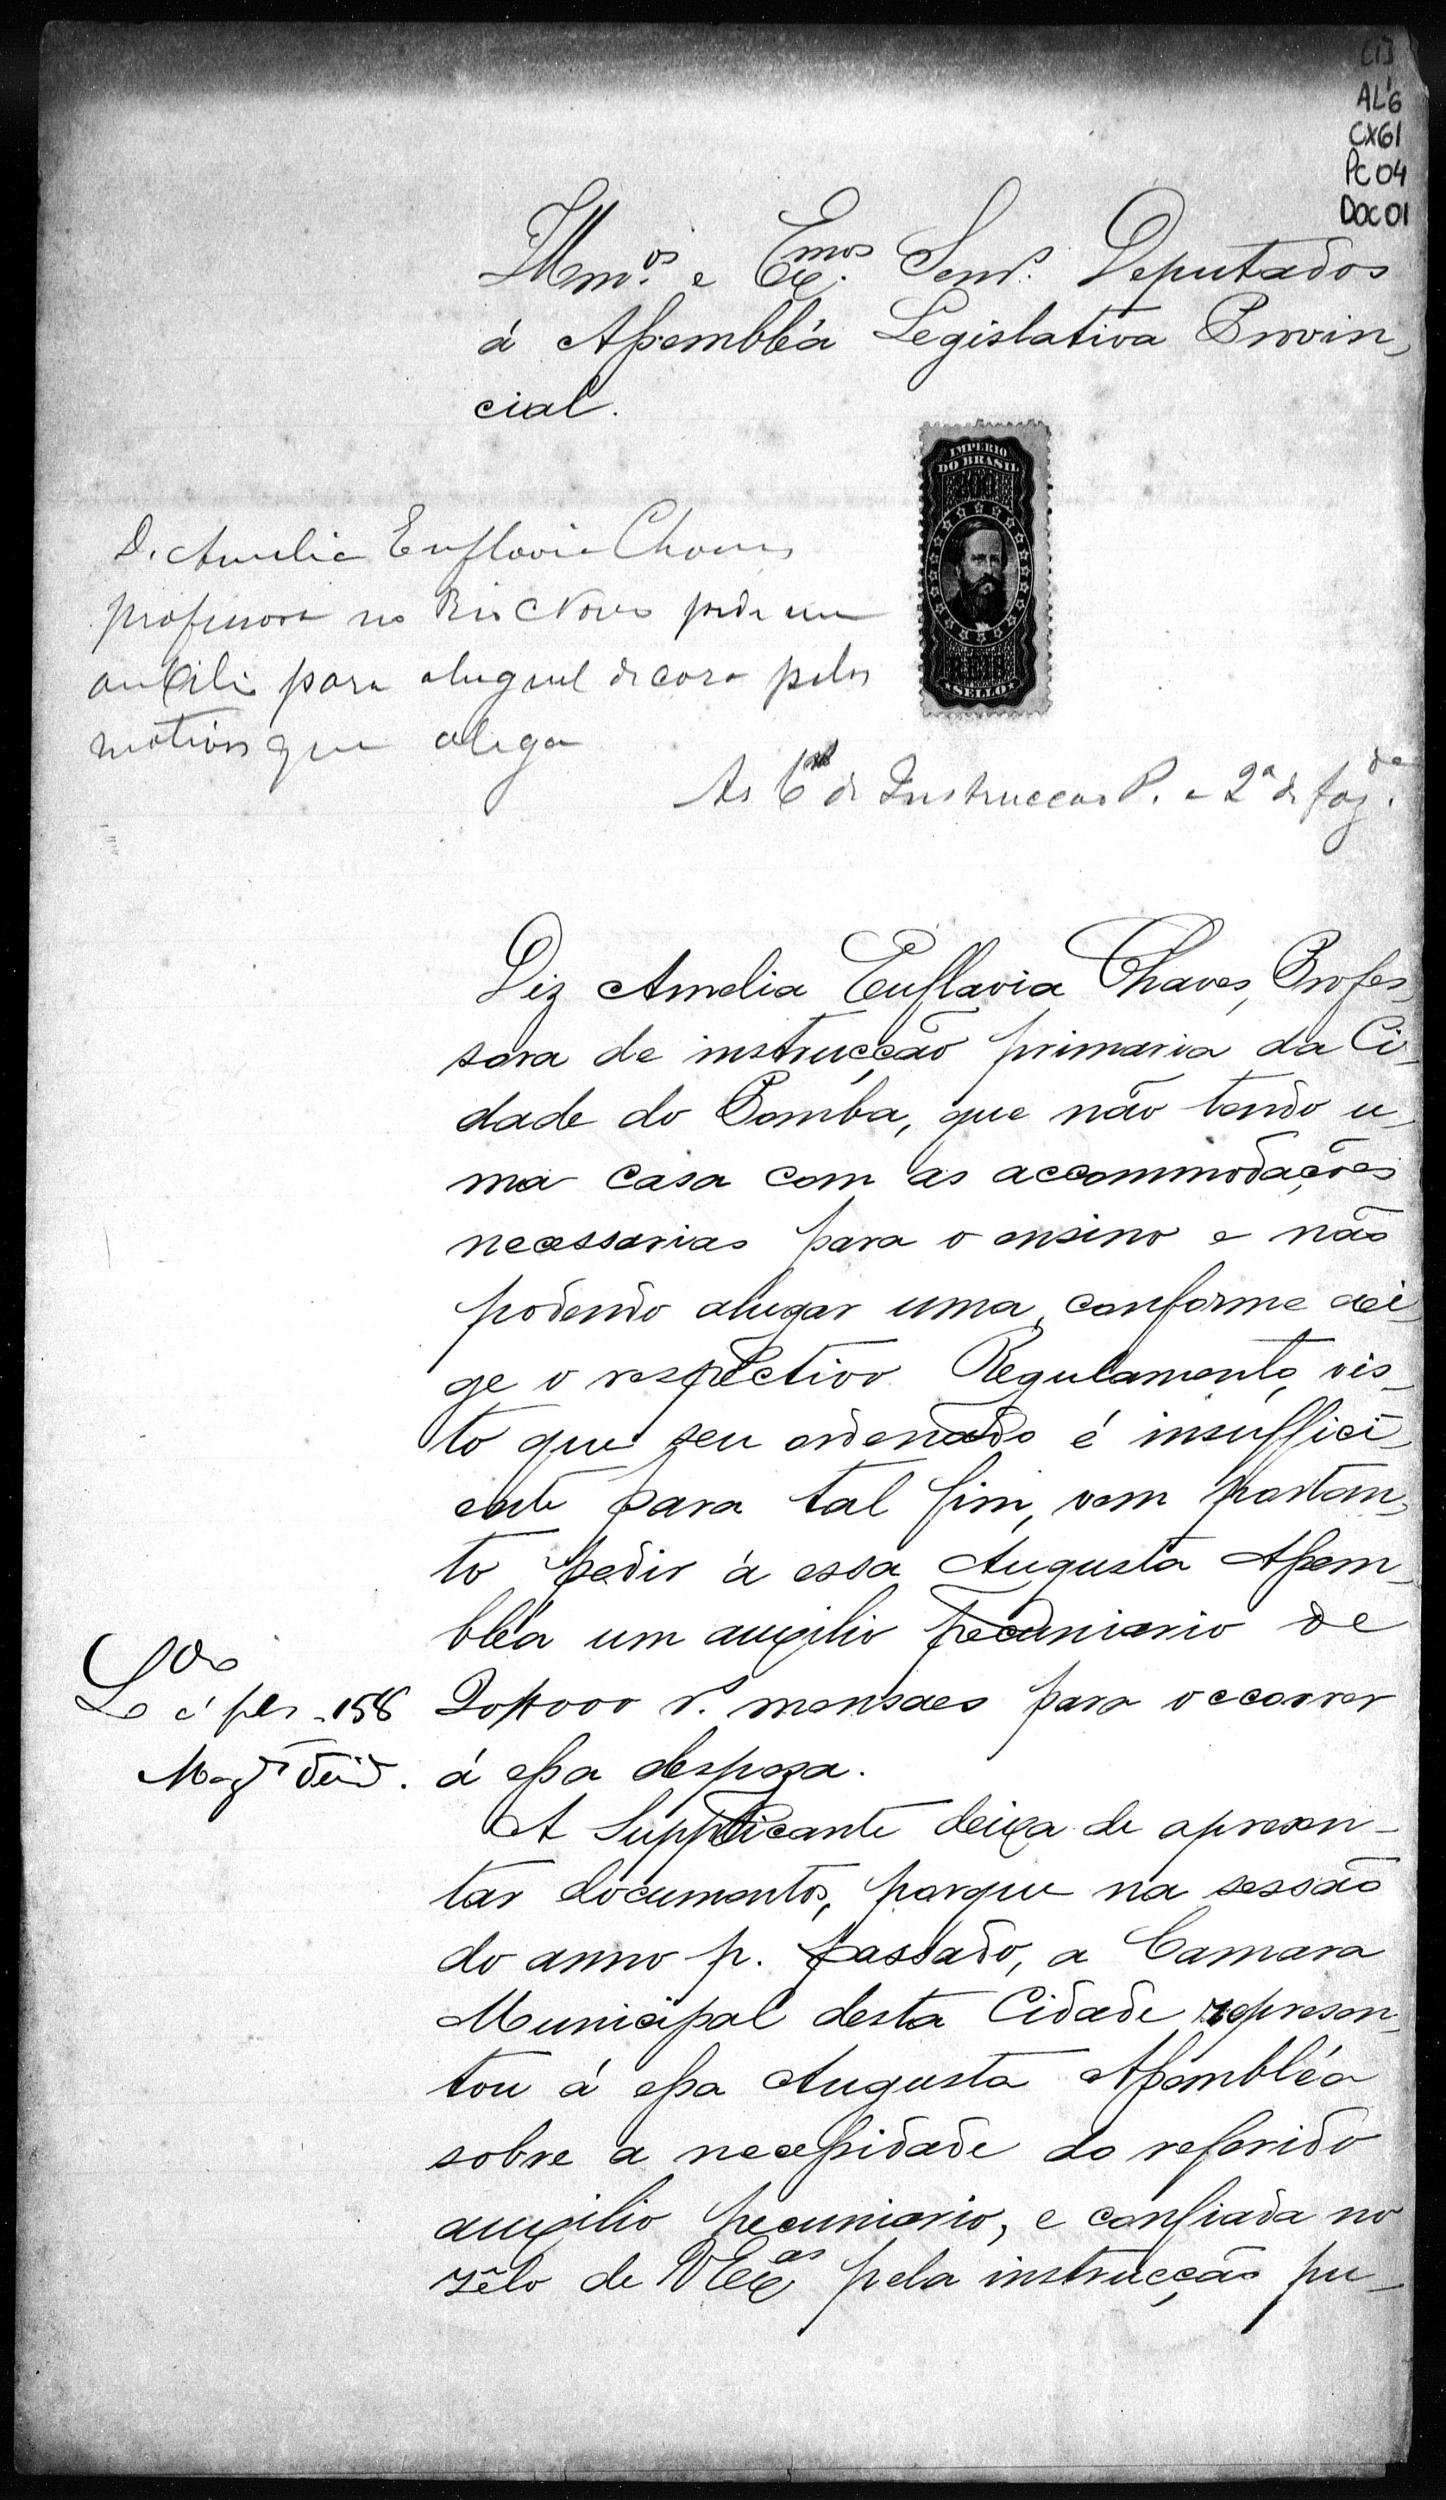 (1)
AL'6
CX61
PC 04
DOC 01
Illm.os e Ex.mos Senr.s Deputados
á Assembléa Legislativa Provin-
cial.
IMPERIO
DO BRASIL
200
REIS
SELLO
D. Amelia Euflavia Chaves
professora no Rio Novo pede um
auxilio para aluguel de casa pelos
motivos que alega
As C de Instrucção P. e 2ª de faz.da
Diz Amelia Euflavia Chaves, Profes-
sora de instrucção primaria da Ci-
dade do Pomba, que não tendo u-
ma casa com as accommodações
necessarias para o ensino e não
podendo alugar uma, conforme exi-
ge o respectivo Regulamento, vis-
to que seu ordenado é insuffici-
ente para tal fim, vem portan-
to pedir á essa Augusta Assem-
bléa um auxilio pecuniario de
20$000 r.s mensaes para occorrer
á essa despeza.
L.o á fls. 158
A Supplicante deixa de apresen-
tar documentos, porque na sessão
do anno p. passado, a Camara
Municipal desta Cidade represen-
tou á essa Augusta Assembléa
sobre a necessidade do referido
auxilio pecuniario, e confiada no
zêlo de VVEx.as pela instrucção pu-